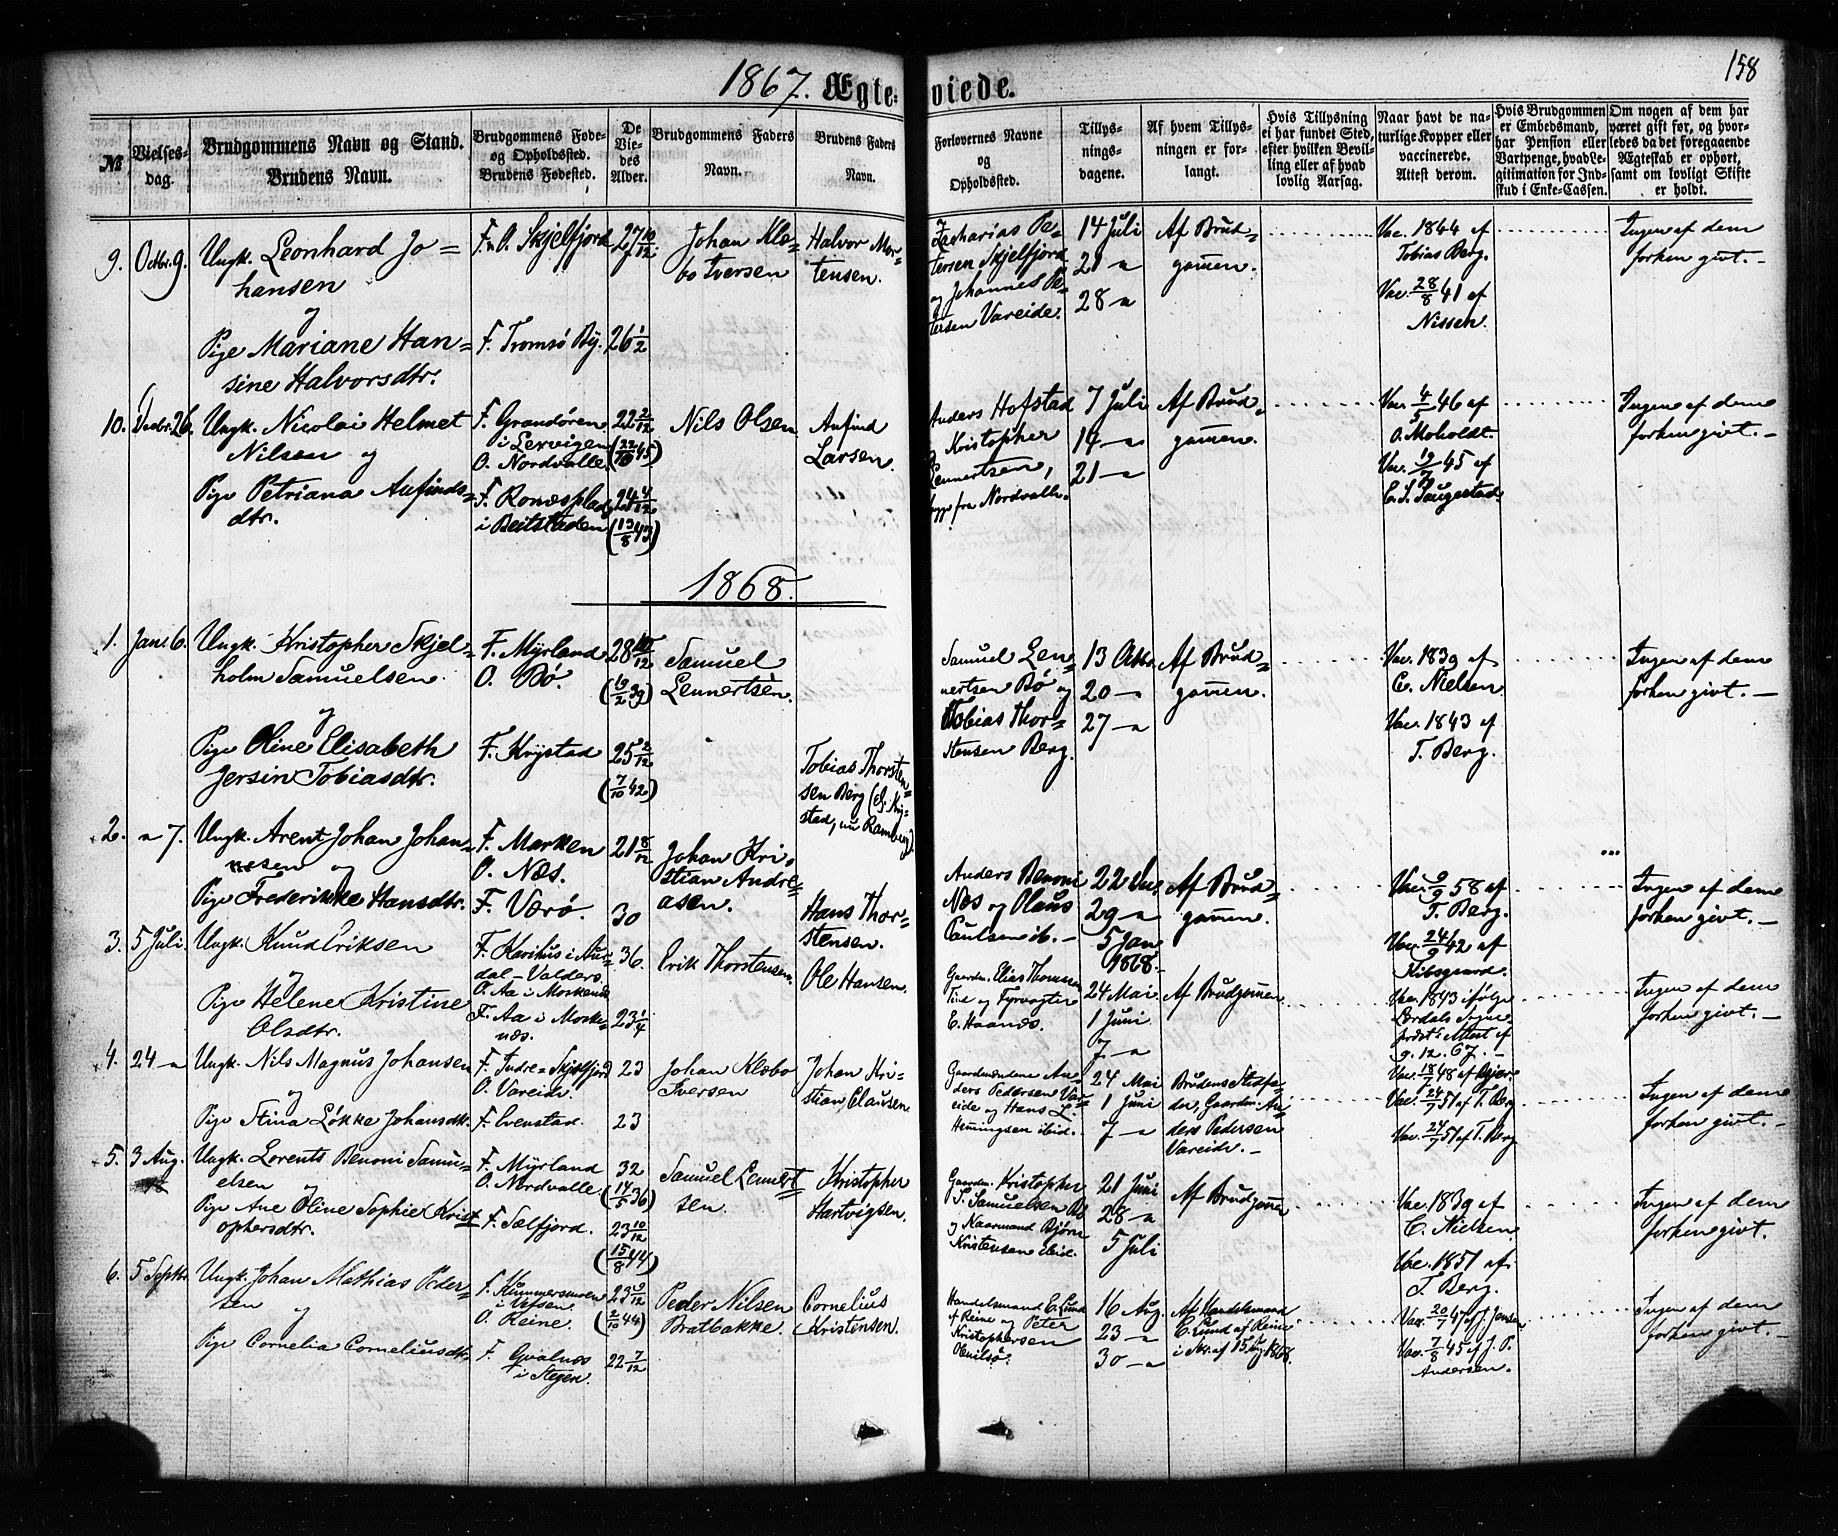 1867. Ægteviede.
158
№
Vielsesdag.
Brudgommens Navn og Stand.
Brudens Navn.
Brudgommens Føde- og Opholdssted.
Brudens Fødested.
De Viedes Alder.
Brudgommens Faders Navn.
Brudens Faders Navn.
Forlovernes Navne og Opholdssted.
Tillysningsdagene.
Af hvem Tillysningen er forlangt.
Hvis Tillysning ei har fundet Sted, efter hvilken Bevilling eller af hvad lovlig Aarsag.
Naar havt de naturlige Kopper eller vaccinerede. Attest derom.
Hvis Brudgommen er Embedsmand, har Pension eller Vartpenge, hvad Legitimation for Indskud i Enke-Cassen.
Om nogen af dem har været gift før, og hvorledes da det foregaaende Ægteskab er ophørt, samt om lovligt Skifte er holdt.
9. Octbr. 9.
Ungk. Leonhard Johansen
og
Pige Mariane Hansine Halvorsdtr.
F. & O. Skjelfjord
F. Tromsö By.
27 10/12
26 1/2
Johan Klæbo Iversen
Halvor Mortensen.
Zacharias Petersen Skjelfjord
og Johannes Petersen Vareide.
14 Juli
21 —
28 —
Af Brudgommen.
Vac. 1844 af
Tobias Berg.
Vac. 28/8 41 af
Nissen.
Ingen af dem
forhen givt. —
10. Decbr. 26.
Ungk. Nicolai Helmet
Nilsen og
Pige Petriana Anfindsdtr.
F. Grandören
i Lexvigen
O. Nordvalle.
F. Ronæsplads
i Beitstaden
22 2/12
24 4/12
(13/8 43)
Nils Olsen
Anfind
Larsen.
Anders Hofstad
Kristopher
Lennertsen,
begge fra Nordvalle.
7 Juli
14 —
21 —
Af Brudgommen.
Vac. 4/5 46 af
O. Moholdt.
45 af
Ingen af dem
forhen givt. —
1868.
1. Jan. 6.
Ungk. Kristopher Skjelholm Samuelsen
og
Pige Oline Elisabeth
Jersin Tobiasdtr.
F. Myrland
O. Bö.
F. Krystad
28 10/12
(19/2 39)
25 2/12
(7/10 42)
Samuel
Lennertsen.
Tobias Thorstensen Berg
nu Ramberg)
Samuel Lennertsen Bö og
Tobias Thorstensen Berg.
13 Octbr.
20 —
27 —
Af Brudgommen.
Vac. 1839 af
C. Nielsen
Vac. 1843 af
T. Berg.
Ingen af dem
forhen givt. —
2. — 7.
Ungk. Arent Johan Johannesen og
Pige Frederikke Hansdtr.
F. Marken
O. Næs.
F. Værö.
21 8/12
30
Johan Kristian Andreasen.
Hans Thorstensen.
Anders Benoni
Næs og Olaus
Paulsen ib. —
22 Dec.
29 —
5 Jan
1868.
Af Brudgommen.
58 af
T. Berg.
Vac. 24/9 42 af
Kibsgaard.
Ingen af dem
forhen givt. —
3. 5 Juli.
Ungk. Knud Eriksen
og
Pige Helene Kristine
Olsdtr.
F. Karihus i Aurdal — Valders
O. Aa i Moskenæs
F. Aa i Moskenæs.
36.
23 1/4
Erik Thorstensen.
Ole Hansen.
Gaardm. Elias Thomsen
Tind og Fyrvogter
E. Haanes.
24 Mai
1 Juni
7 —
Af Brudgommen
Vac. 1843 ifölge
Lærdals Sogne
Attest af
9. 12. 67. —
Ingen af dem
forhen givt. —
4. 24 —
Ungk. Nils Magnus Johansen
og
Pige Stina Løkke Johansdtr.
F. Indre-Skjelfjord
O. Vareide.
F. Evenstad.
23
23
Johan Klæbo
Iversen
Johan Kristian Clausen
Gaardmændene Anders Pedersen Vareide og Hans L.
Henningsen ibid.
24 Mai
1 Juni
7 —
Brudens Stedfader, Gaardm. Anders Pedersen
Vareide. —
Vac. 18/7 48 af
Vac. 24/7 51 af T. Berg
Vac. 24/7 51 af T. Berg
Ingen af dem
forhen givt. —
5. 3 Aug.
Ungk. Lorents Benoni Samuelsen og
Pige Ane Oline Sophie Kristophersdtr.
F. Myrland
O. Nordvalle.
F. Sælfjord.
32
(14/5 36)
23 10/12
(15/8 44)
Samuel Lennertsen.
Kristopher
Hartvigsen.
Gaardm. Kristopher
S. Samuelsen Bö
og Kaarmand Bjørn
Kristensen ibid.
21 Juni
28 —
5 Juli
Af Brudgommen
Vac. 1839 af
C. Nielsen
Vac. 1851 af
T. Berg.
Ingen af dem
forhen givt.
6. 5 Septbr.
Ungk. Johan Mathias Pedersen og
Pige Cornelia Corneliusdtr.
F. Kummersmoen
i Vefsen
O. Reine.
F. Gvalnæs
i Stegen.
23 9/12
(2/10 44)
22 7/12
Peder Nilsen
Bratbakke.
Cornelius
Kristensen.
Handelsmand E. Lund
af Reine og Peter
Kristophersen
Olnilsö.
16 Aug.
23 —
30 —
Af Handelsmand
E. Lund af Reine
i Skr. af 15 Aug 1868.
Vac. 20/7 47 af J. Jensen
Vac. 7/8 45 af J. P.
Andersen.
Ingen af dem
forhen givt. —